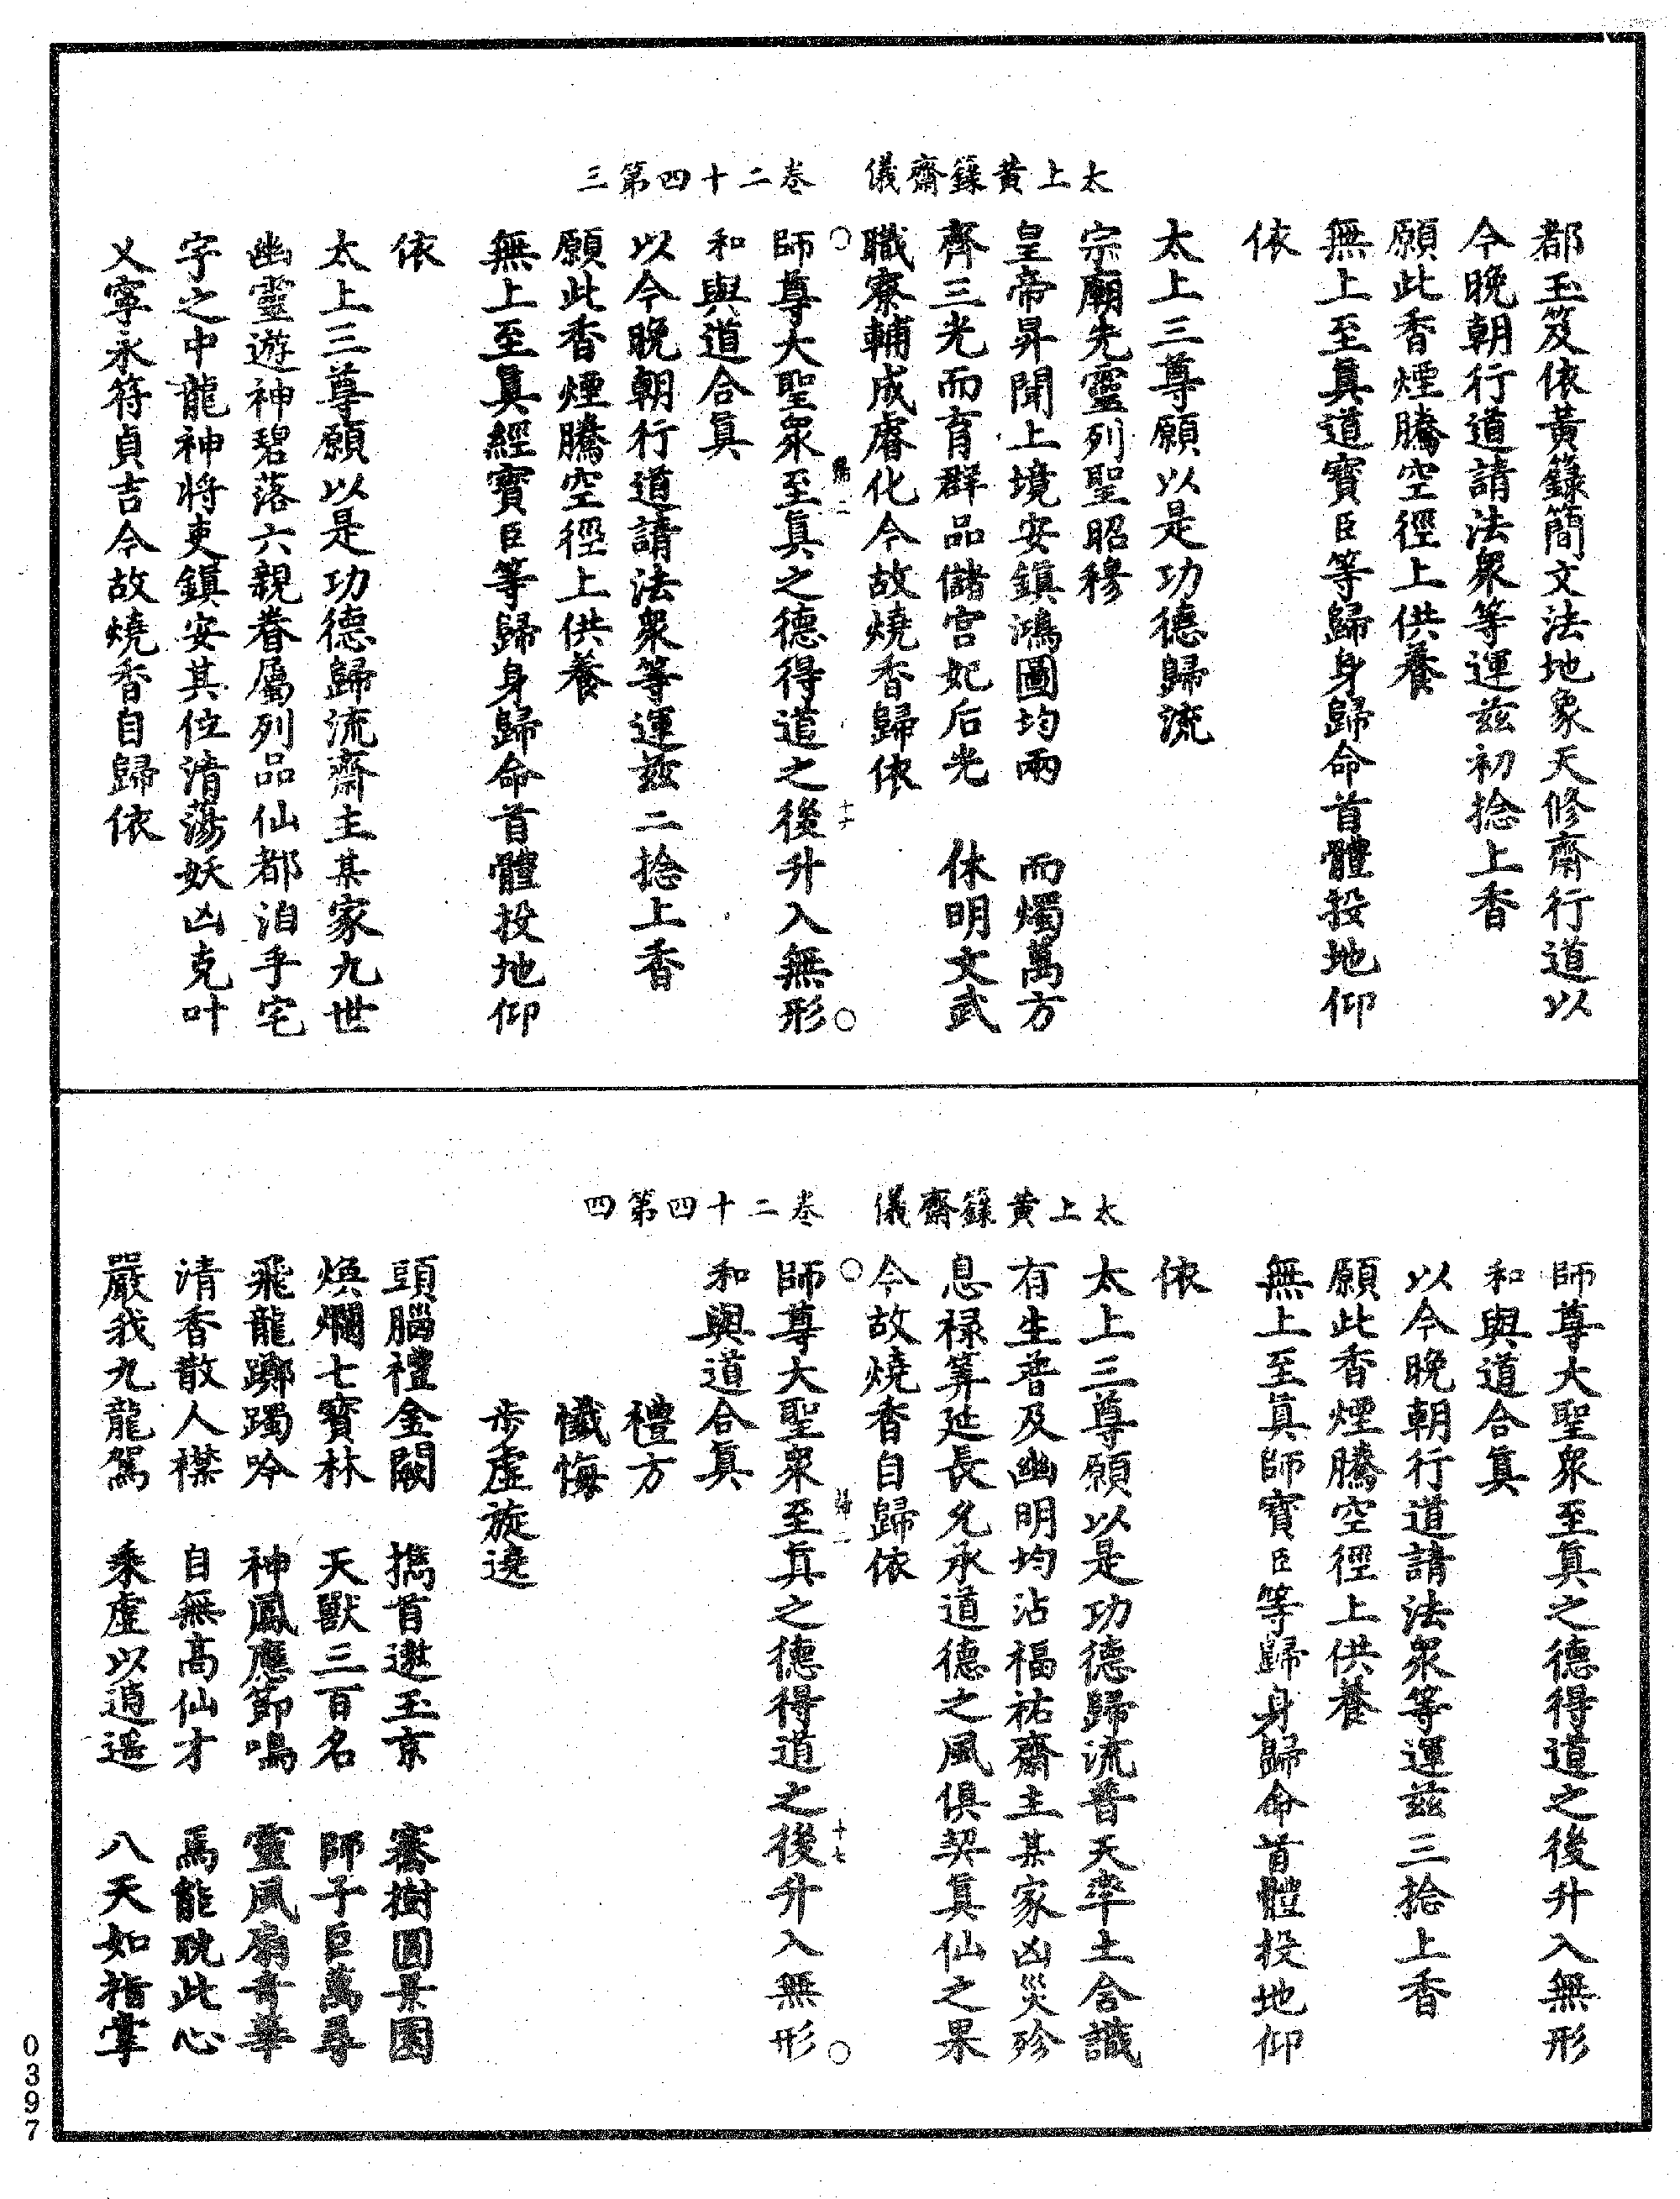 太上黃籙齋儀　卷二十四第三
都玉笈依黃籙簡文法地象天修齋行道以
今晚朝行道請法衆等運兹初捻上香
願此香煙騰空徑上供養
無上至真道寶臣等歸身歸命首體投地仰
依
太上三尊願以是功德歸流
宗廟先靈列聖昭穆
皇帝昇聞上境安鎮鴻圖均兩　而燭萬方
齊三光而育群品儲宮妃后光　休明文武
職寮輔成睿化今故燒香歸依
師尊大聖衆至真之德得道之後升入無形
和與道合真
以今晚朝行道請法衆等運兹二捻上香
願此香煙騰空徑上供養
無上至真經寶臣等歸身歸命首體投地仰
依
太上三尊願以是功德歸流齋主某家九世
幽靈遊神碧落六親眷屬列品仙都洎乎宅
宇之中龍神將吏鎮安其位清蕩妖凶克叶
乂寧永符貞吉今故燒香自歸依
太上黃籙齋儀　卷二十四第四
師尊大聖衆至真之德得道之後升入無形
和與道合真
以今晚朝行道請法衆等運兹三捻上香
願此香煙騰空徑上供養
無上至真師寶臣等歸身歸命首體投地仰
依
太上三尊願以是功德歸流普天率土含識
有生普及幽明均沾福祐齋主某家凶災殄
息祿筭延長允承道德之風俱契真仙之果
今故燒香自歸依
師尊大聖衆至真之德得道之後升入無形
和與道合真
禮方
懺悔
步虛旋遶
頭腦禮金闕　攜首遨玉京　騫樹圓景園
煥爛七寶林　天獸三百名　師子巨萬尋
飛龍躑躅吟　神鳳應節鳴　靈風扇奇華
清香散人襟　自無高仙才　焉能耽此心
嚴我九龍駕　乘虛以逍遥　八天如指掌
0397